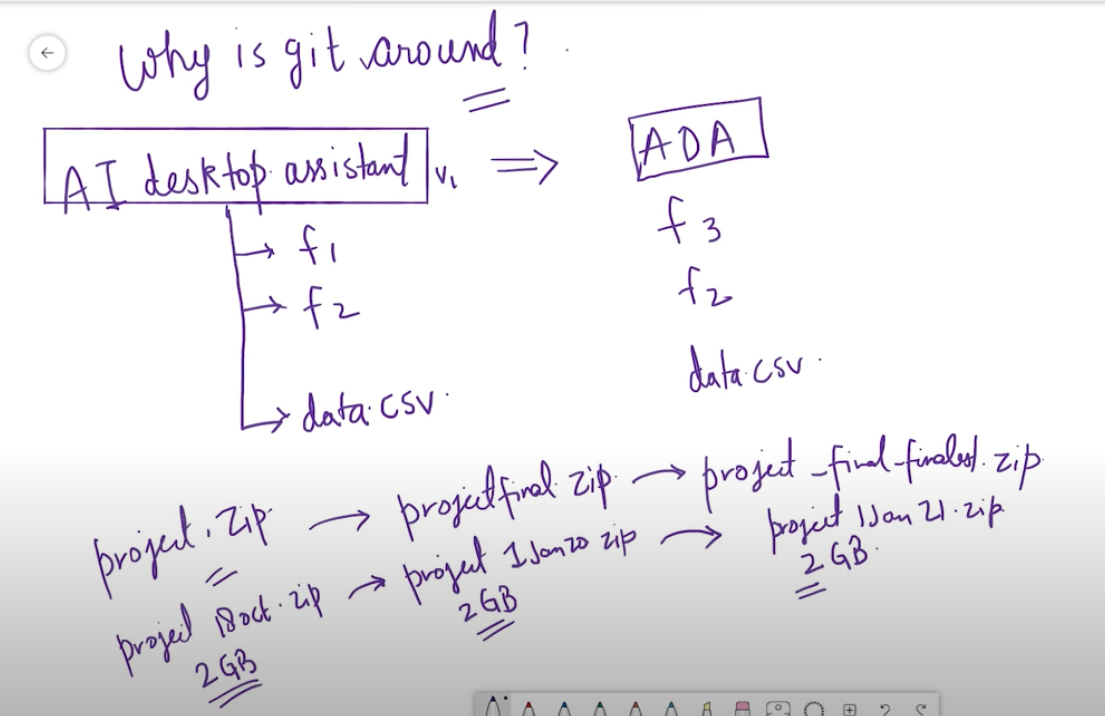 Why is git around?
AI desktop assistant v1 ⇒ ADA
f1
f2
data.csv.
f3
f2
data.csv.
project.zip → projectfinal.zip. → project_final-finalest.zip.
project 18oct.zip → project 1Jan20 zip → project 1Jan 21.zip
2GB
2GB
2GB.